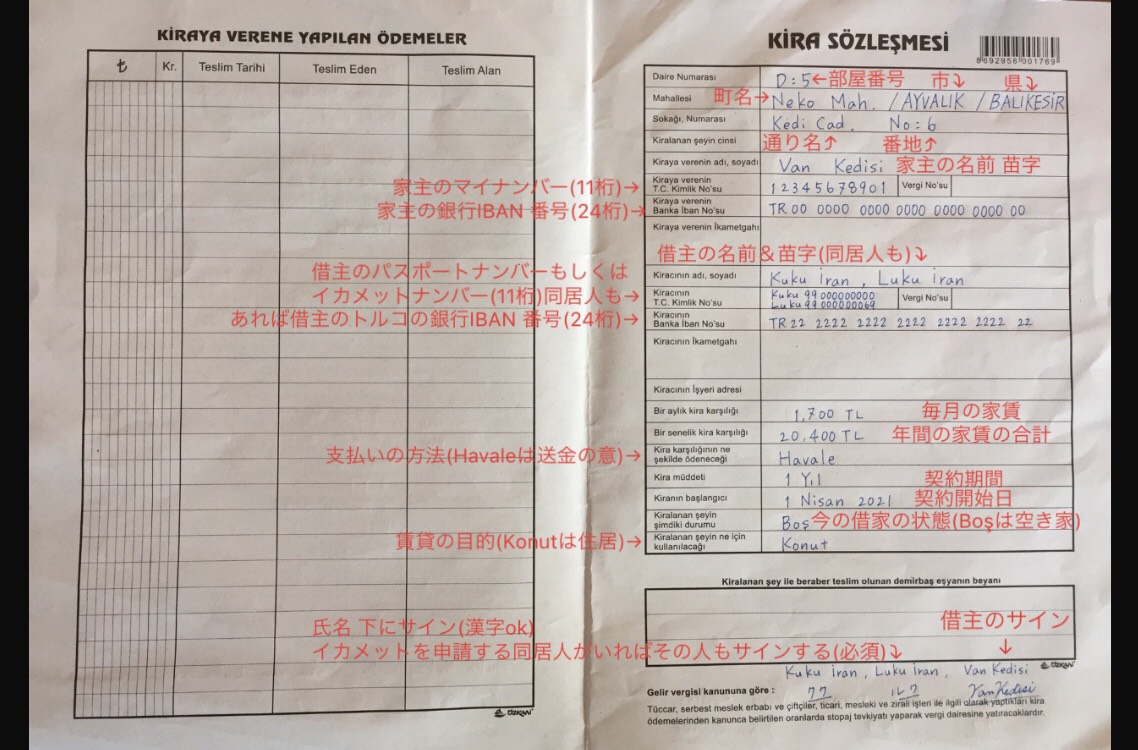 KİRAYA VERENE YAPILAN ÖDEMELER
₺ Kr. Teslim Tarihi Teslim Eden Teslim Alan
家主のマイナンバー(11桁)→
家主の銀行IBAN 番号(24桁)→
借主のパスポートナンバーもしくは
イカメットナンバー(11桁)同居人も→
あれば借主のトルコの銀行IBAN 番号(24桁)→
支払いの方法(Havaleは送金の意)→
賃貸の目的(Konutは住居)→
氏名 下にサイン(漢字ok)
イカメットを申請する同居人がいればその人もサインする(必須)⤵
ÖZKAN
KİRA SÖZLEŞMESİ
8692956001769
Daire Numarası D:5 ←部屋番号 市⤵ 県⤵
Mahallesi 町名→ Neko Mah. / AYVALIK / BALIKESİR
Sokağı, Numarası Kedi Cad. No:6
Kiralanan şeyin cinsi 通り名⤴ 番地⤴
Kiraya verenin adı, soyadı Van Kedisi 家主の名前 苗字
Kiraya verenin
T.C. Kimlik No'su 12345678901 Vergi No'su
Kiraya verenin
Banka İban No'su TR 00 0000 0000 0000 0000 0000 00
Kiraya verenin İkametgahı
借主の名前＆苗字(同居人も)⤵
Kiracının adı, soyadı Kuku İran, Luku İran
Kiracının
T.C. Kimlik No'su Kuku 99 000000000
Luku 99 000000069 Vergi No'su
Kiracının
Banka İban No'su TR 22 2222 2222 2222 2222 2222 22
Kiracının İkametgahı
Kiracının İşyeri adresi
Bir aylık kira karşılığı 1,700 TL 毎月の家賃
Bir senelik kira karşılığı 20,400 TL 年間の家賃の合計
Kira karşılığının ne
şekilde ödeneceği Havale
Kira müddeti 1 Yıl 契約期間
Kiranın başlangıcı 1 Nisan 2021 契約開始日
Kiralanan şeyin
şimdiki durumu Boş 今の借家の状態(Boşは空き家)
Kiralanan şeyin ne için
kullanılacağı Konut
Kiralanan şey ile beraber teslim olunan demirbaş eşyanın beyanı
借主のサイン
↓
ÖZKAN
Kuku İran, Luku İran, Van Kedisi
Gelir vergisi kanununa göre : クク ルク Van Kedisi
Tüccar, serbest meslek erbabı ve çiftçiler, ticari, mesleki ve zirai işlen ile ilgili olarak yaptıkları kira
ödemelerinden kanunca belirtilen oranlarda stopaj tevkiyatı yaparak vergi dairesine yatıracaklardır.